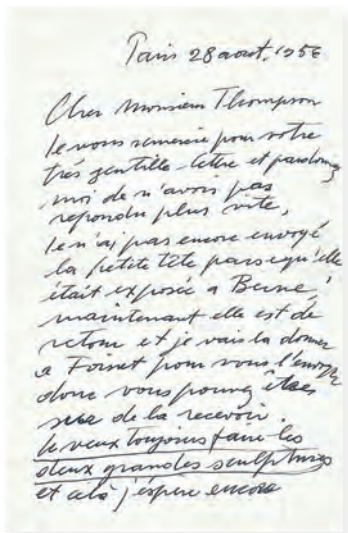 Paris 28 aout. 1956
Cher Monsieur Thompson
Je vous remercie pour votre
très gentille lettre et pardonnez
moi de n'avoir pas
repondu plus vite,
Je n'ai pas encore envoyé
la petite tête parsequ'elle
était exposée a Berne,
maintenant elle est de
retour et je vais la donner
a Foinet pour vous l'envoyer
donc vous pouvez êtres
sur de la recevoir.
Je veux toujours faire les
deux grandes sculptures
et cela j'espere encore